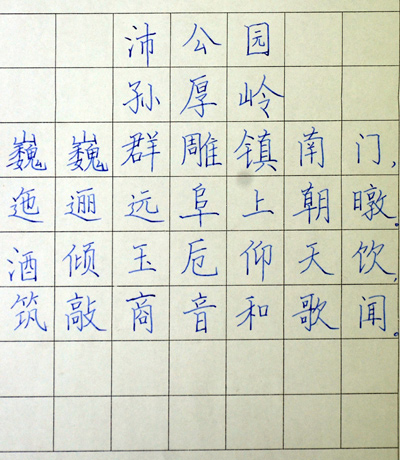 沛公园
孙厚岭
巍巍群雕镇南门,
迤逦远阜上朝暾。
酒倾玉卮仰天饮,
筑敲商音和歌闻。